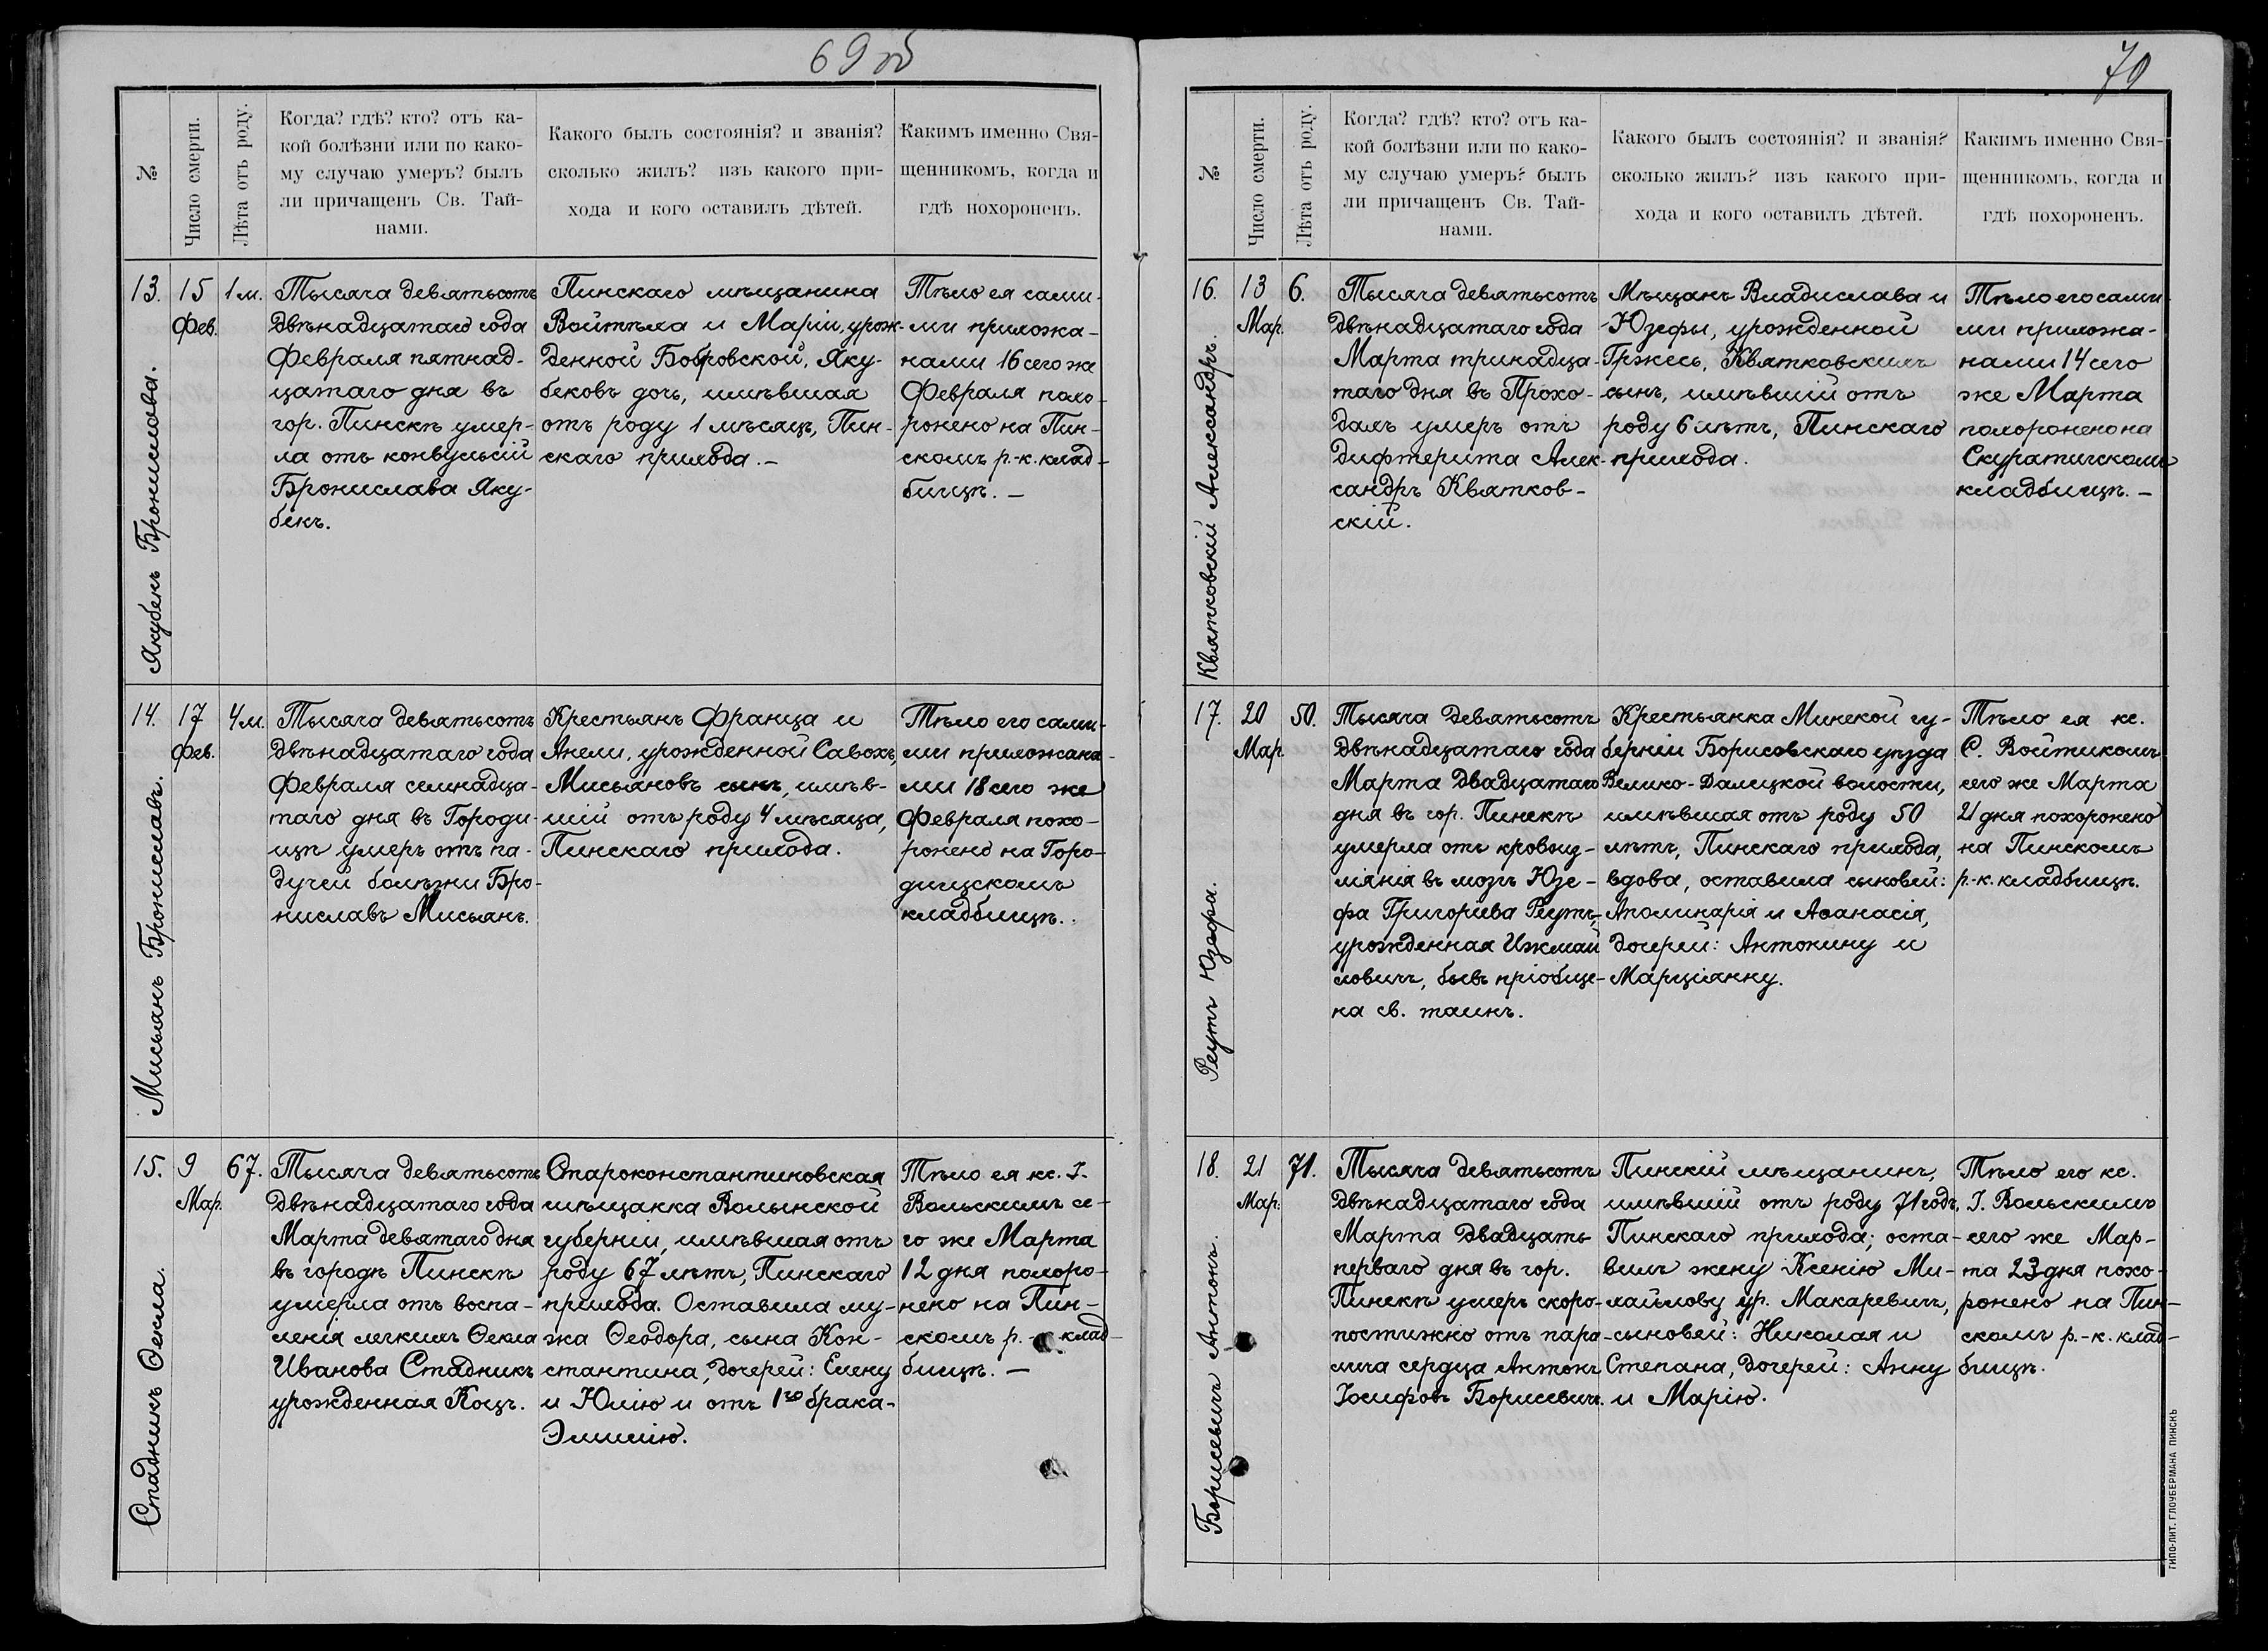 69об
№
Число смерти.
Лѣта отъ роду.
Когда? гдѣ? кто? отъ ка-
кой болѣзни или по како-
му случаю умеръ? былъ
ли причащенъ Св. Тай-
нами.
Какого былъ состоянія? и званія?
сколько жилъ? изъ какого при-
хода и кого оставилъ дѣтей.
Какимъ именно Свя-
щенникомъ, когда и
гдѣ похороненъ.
13.
Якубекъ Бронислава.
15
Фев.
1 м.
Тысяча девятьсотъ
двѣнадцатаго года
Февраля пятнад-
цатаго дня въ
гор. Пинскѣ умер-
ла отъ конвульсій
Бронислава Яку-
бекъ.
Пинскаго мѣщанина
Войтѣха и Маріи, урож-
денной Бобровской, Яку-
бековъ дочь, имѣвшая
отъ роду 1 мѣсяцъ, Пин-
скаго прихода. –
Тѣло ея сами-
ми прихожа-
нами 16 сего же
Февраля похо-
ронено на Пин-
скомъ р.-к. клад-
бищѣ. –
14.
Мисьянъ Брониславъ.
17
Фев.
4 м.
Тысяча девятьсотъ
двѣнадцатаго года
Февраля семнадца-
таго дня въ Городи-
щѣ умеръ отъ па-
дучей болѣзни Бро-
ниславъ Мисьянъ.
Крестьянъ Франца и
Анели, урожденной Савохъ,
Мисьяновъ сынъ, имѣв-
шій отъ роду 4 мѣсяца,
Пинскаго прихода.
Тѣло его сами-
ми прихожана-
ми 18 сего же
Февраля похо-
ронено на Горо-
дищскомъ
кладбищѣ.
15.
Стадникъ Ѳекла.
9
Мар.
67.
Тысяча девятьсотъ
двѣнадцатаго года
Марта девятаго дня
въ городѣ Пинскѣ
умерла отъ воспа-
ленія легкихъ Ѳекла
Иванова Стадникъ
урожденная Коцъ.
Староконстантиновская
мѣщанка Волынской
губерніи, имѣвшая отъ
роду 67 лѣтъ, Пинскаго
прихода. Оставила му-
жа Ѳеодора, сына Кон-
стантина, дочерей: Елену
и Юлію и отъ 1го брака-
Эмилію.
Тѣло ея кс. І.
Вольскимъ се-
го же Марта
12 дня похоро-
нено на Пин-
скомъ р.- клад-
бищѣ. –
70
№
Число смерти.
Лѣта отъ роду.
Когда? гдѣ? кто? отъ ка-
кой болѣзни или по како-
му случаю умеръ? былъ
ли причащенъ Св. Тай-
нами.
Какого былъ состоянія? и званія?
сколько жилъ? изъ какого при-
хода и кого оставилъ дѣтей.
Какимъ именно Свя-
щенникомъ, когда и
гдѣ похороненъ.
16.
Квятковскій Александръ.
13
Мар.
6.
Тысяча девятьсотъ
двѣнадцатаго года
Марта тринадца-
таго дня въ Прохо-
дахъ умеръ отъ
дифтерита Алек-
сандръ Квятков-
скій.
Мѣщанъ Владислава и
Юзефы, урожденной
Гржесь, Квятковскихъ
сынъ, имѣвшій отъ
роду 6 лѣтъ, Пинскаго
прихода.
Тѣло его сами-
ми прихожа-
нами 14 сего
же Марта
похоронено на
Скуратичскомъ
кладбищѣ. –
17.
Реутъ Юзефа.
20
Мар.
50.
Тысяча девятьсотъ
двѣнадцатаго года
Марта двадцатаго
дня въ гор. Пинскѣ
умерла отъ кровоиз-
ліянія въ мозгъ Юзе-
фа Григорьева Реутъ,
урожденная Ижмай
ловичъ, бывъ пріобще-
на св. таинъ.
Крестьянка Минской гу-
берніи Борисовскаго уѣзда
Велико-Далицкой волости,
имѣвшая отъ роду 50
лѣтъ, Пинскаго прихода,
вдова, оставила сыновей:
Аполинарія и Аѳанасія,
дочерей: Антонину и
Марціянну.
Тѣло ея кс.
С. Войтикомъ
сего же Марта
21 дня похоронено
на Пинскомъ
р.-к. кладбищѣ.
18.
Борисевичъ Антонъ.
21
Мар.
71.
Тысяча девятьсотъ
двѣнадцатаго года
Марта двадцать
перваго дня въ гор.
Пинскѣ умеръ скоро-
постижно отъ пара-
лича сердца Антонъ
Іосифовъ Борисевичъ.
Пинскій мѣщанинъ,
имѣвшій отъ роду 71 годъ,
Пинскаго прихода; оста-
вилъ жену Ксенію Ми-
хайлову ур. Макаревичъ,
сыновей: Николая и
Степана, дочерей: Анну
и Марію.
Тѣло его кс.
І. Вольскимъ
сего же Мар-
та 23 дня похо-
ронено на Пин-
скомъ р.-к. клад-
бищѣ.
ТИПО-ЛИТ. ГЛОУБЕРМАНА ПИНСКЪ